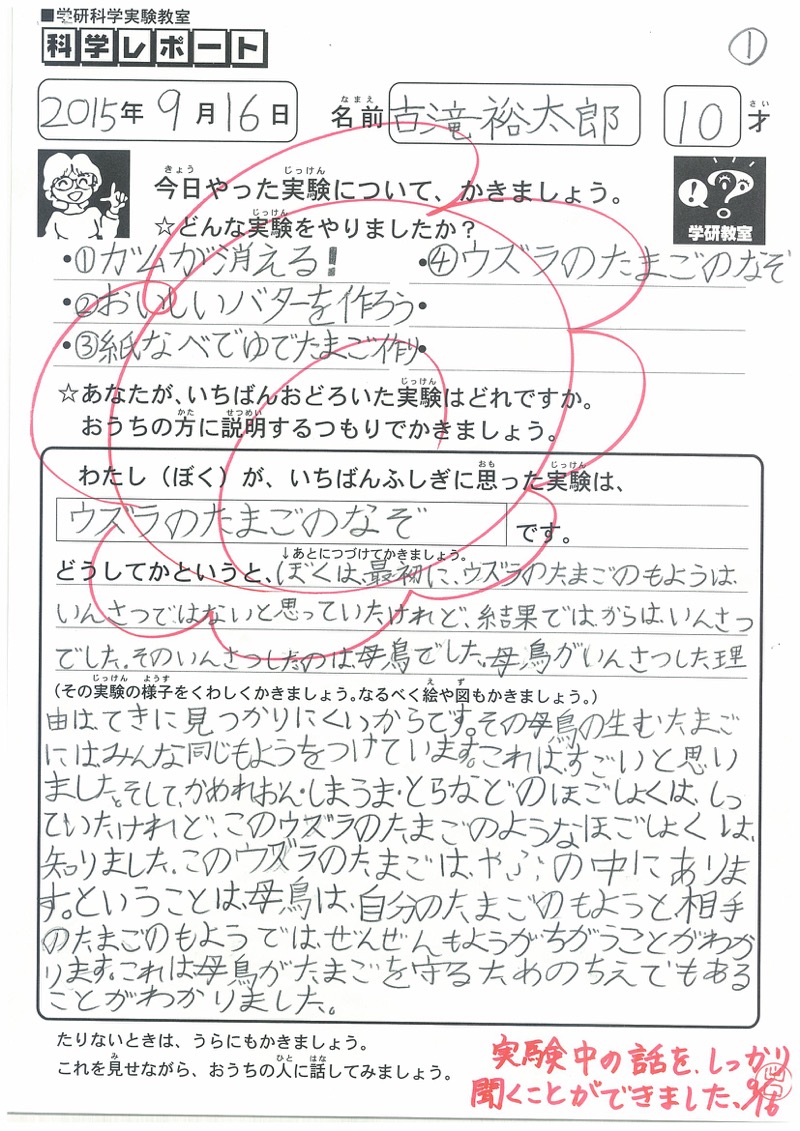 ■学研科学実験教室
科学レポート
①
2015年 9月16日 名前 古滝裕太郎 10才
なまえ さい
きょう じっけん
今日やった実験について、かきましょう。
じっけん
☆どんな実験をやりましたか？
学研教室
・①ガムが消える! ・④ウズラのたまごのなぞ
・②おいしいバターを作ろう・
・③紙なべでゆでたまご作り・
じっけん
☆あなたが、いちばんおどろいた実験はどれですか。
かた せつめい
おうちの方に説明するつもりでかきましょう。
おも じっけん
わたし（ぼく）が、いちばんふしぎに思った実験は、
ウズラのたまごのなぞ です。
↓あとにつづけてかきましょう。
どうしてかというと、ぼくは、最初に、ウズラのたまごのもようは、
いんさつではないと思っていたけれど、結果では、からは、いんさつ
でした。そのいんさつしたのは、母鳥でした。母鳥がいんさつした理
じっけん ようす え ず
（その実験の様子をくわしくかきましょう。なるべく絵や図もかきましょう。）
由は、てきに見つかりにくいからです。その母鳥の生む、たまご
にはみんな同じもようをつけています。これは、すごいと思い
ました。そして、かめれおん・しまうま・とらなどのほごしょくは、しっ
ていたけれど、このウズラのたまごのようなほごしょくは、
知りました。このウズラのたまごは、やぶの中にありま
す。ということは、母鳥は、自分のたまごのもようと、相手
のたまごのもようでは、ぜんぜんもようがちがうことがわか
ります。これは母鳥がたまごを守るためのちえでもある
ことがわかりました。
たりないときは、うらにもかきましょう。
み ひと はな
これを見せながら、おうちの人に話してみましょう。
実験中の話を、しっかり
聞くことができました。9/16